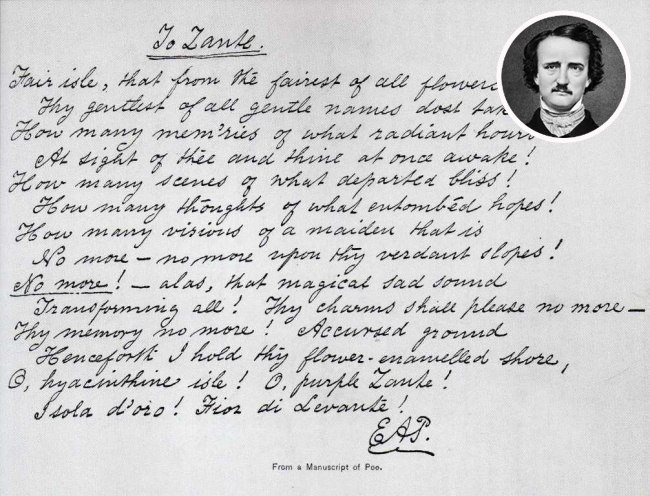 To Zante.
Fair isle, that from the fairest of all flowers
Thy gentlest of all gentle names dost tak
How many mem'ries of what radiant hours
At sight of thee and thine at once awake!
How many scenes of what departed bliss!
How many thoughts of what entombéd hopes!
How many visions of a maiden that is
No more — no more upon thy verdant slopes!
No more! — alas, that magical sad sound
Transforming all! Thy charms shall please no more —
Thy memory no more! Accursed ground
Henceforth I hold thy flower-enamelled shore,
O, hyacinthine isle! O, purple Zante!
Isola d'oro! Fior di Levante!
EAP.
From a Manuscript of Poe.